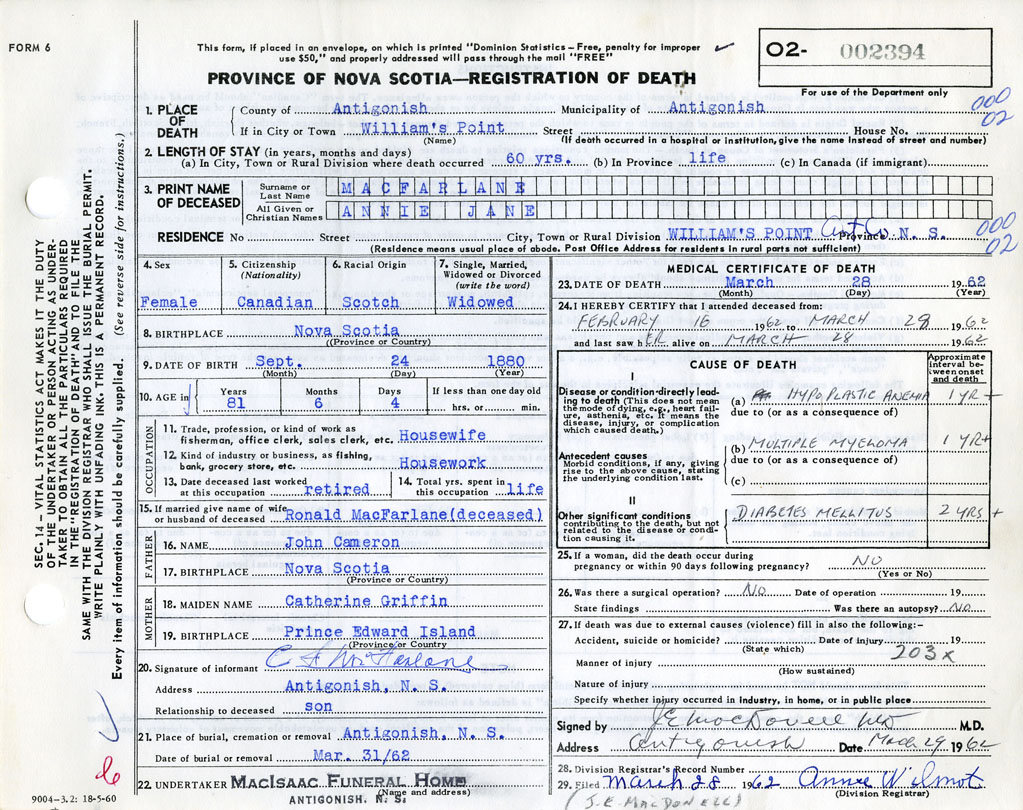 FORM 6
This form, if placed in an envelope, on which is printed "Dominion Statistics – Free, penalty for improper
use $50," and properly addressed will pass through the mail "FREE"
O2- 002394
For use of the Department only
PROVINCE OF NOVA SCOTIA—REGISTRATION OF DEATH
000
02
1. PLACE OF DEATH
County of Antigonish Municipality of Antigonish
If in City or Town William's Point Street House No.
(Name) (If death occurred in a hospital or institution, give the name instead of street and number)
2. LENGTH OF STAY (in years, months and days)
(a) In City, Town or Rural Division where death occurred 60 yrs. (b) In Province life (c) In Canada (if immigrant)
3. PRINT NAME OF DECEASED
Surname or Last Name MACFARLANE
All Given or Christian Names ANNIE JANE
RESIDENCE No Street City, Town or Rural Division WILLIAM'S POINT Province N. S.
(Residence means usual place of abode. Post Office Address for residents in rural parts not sufficient)
000
02
4. Sex
Female
5. Citizenship
(Nationality)
Canadian
6. Racial Origin
Scotch
7. Single, Married,
Widowed or Divorced
(write the word)
Widowed
8. BIRTHPLACE Nova Scotia
(Province or Country)
9. DATE OF BIRTH Sept. 24 1880
(Month) (Day) (Year)
10. AGE in
Years Months Days If less than one day old
81 6 4 hrs. or min.
OCCUPATION
11. Trade, profession, or kind of work as
fisherman, office clerk, sales clerk, etc. Housewife
12. Kind of industry or business, as fishing,
bank, grocery store, etc. Housework
13. Date deceased last worked
at this occupation retired
14. Total yrs. spent in
this occupation life
15. If married give name of wife
or husband of deceased Ronald MacFarlane(deceased)
FATHER
16. NAME John Cameron
17. BIRTHPLACE Nova Scotia
(Province or Country)
MOTHER
18. MAIDEN NAME Catherine Griffin
19. BIRTHPLACE Prince Edward Island
(Province or Country)
20. Signature of informant C F McFarlane
Address Antigonish, N. S.
Relationship to deceased son
21. Place of burial, cremation or removal Antigonish, N. S.
Date of burial or removal Mar. 31/62
22. UNDERTAKER MACISAAC FUNERAL HOME
(Name and address)
ANTIGONISH, N. S.
MEDICAL CERTIFICATE OF DEATH
23. DATE OF DEATH March 28 1962
(Month) (Day) (Year)
24. I HEREBY CERTIFY that I attended deceased from:
FEBRUARY 16 1962 to MARCH 28 1962
and last saw hER alive on MARCH 28 1962
CAUSE OF DEATH
Approximate
interval be-
tween onset
and death
I
Disease or condition directly lead-
ing to death (This does not mean
the mode of dying, e.g., heart fail-
ure, asthenia, etc. It means the
disease, injury, or complication
which caused death.)
(a) HYPOPLASTIC ANEMIA 1 YR +
due to (or as a consequence of)
(b) MULTIPLE MYELOMA 1 YR+
due to (or as a consequence of)
(c)
Antecedent causes
Morbid conditions, if any, giving
rise to the above cause, stating
the underlying condition last.
II
Other significant conditions
contributing to the death, but not
related to the disease or condi-
tion causing it.
DIABETES MELLITUS 2 YRS +
25. If a woman, did the death occur during
pregnancy or within 90 days following pregnancy? NO
(Yes or No)
26. Was there a surgical operation? NO Date of operation 19
State findings Was there an autopsy? NO
27. If death was due to external causes (violence) fill in also the following:-
Accident, suicide or homicide? Date of injury 19
(State which)
203x
Manner of injury
(How sustained)
Nature of injury
Specify whether injury occurred in industry, in home, or in public place
Signed by J E MacDonell MD M.D.
Address Antigonish Date March 29 1962
28. Division Registrar's Record Number
29. Filed March 28 1962 Annie Wilmot
(Division Registrar)
(J.E. MACDONELL)
SEC. 14 – VITAL STATISTICS ACT MAKES IT THE DUTY
OF THE UNDERTAKER OR PERSON ACTING AS UNDER-
TAKER TO OBTAIN ALL THE PARTICULARS REQUIRED
IN THE "REGISTRATION OF DEATH" AND TO FILE THE
SAME WITH THE DIVISION REGISTRAR WHO SHALL ISSUE THE BURIAL PERMIT.
WRITE PLAINLY WITH UNFADING INK. THIS IS A PERMANENT RECORD.
Every item of information should be carefully supplied. (See reverse side for instructions.)
9004-3.2: 18-5-60